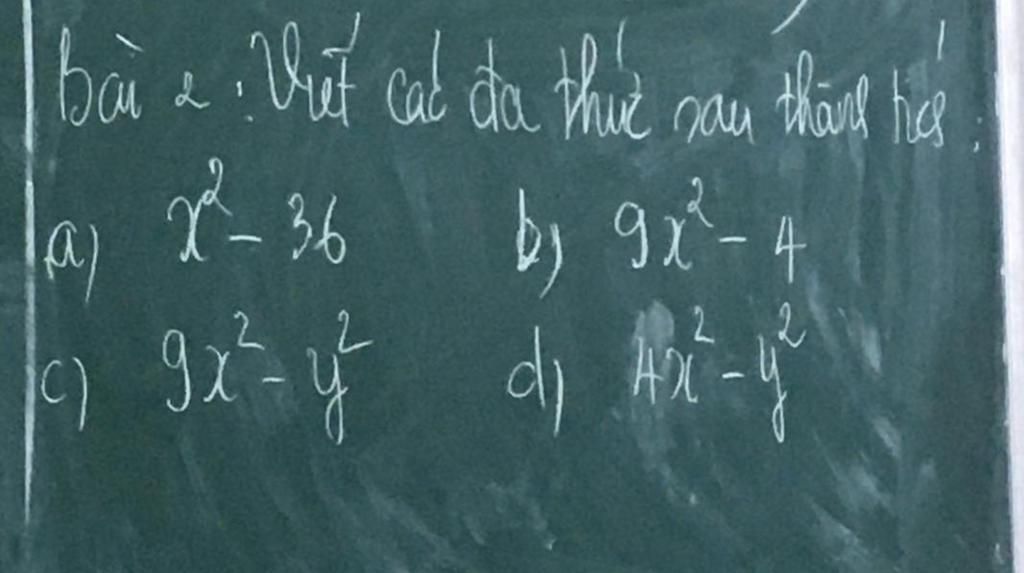 Bài 2: Viết các đa thức sau thành tích:
a) x² - 36 b) 9x² - 4
c) 9x² - y² d) 4x² - y²